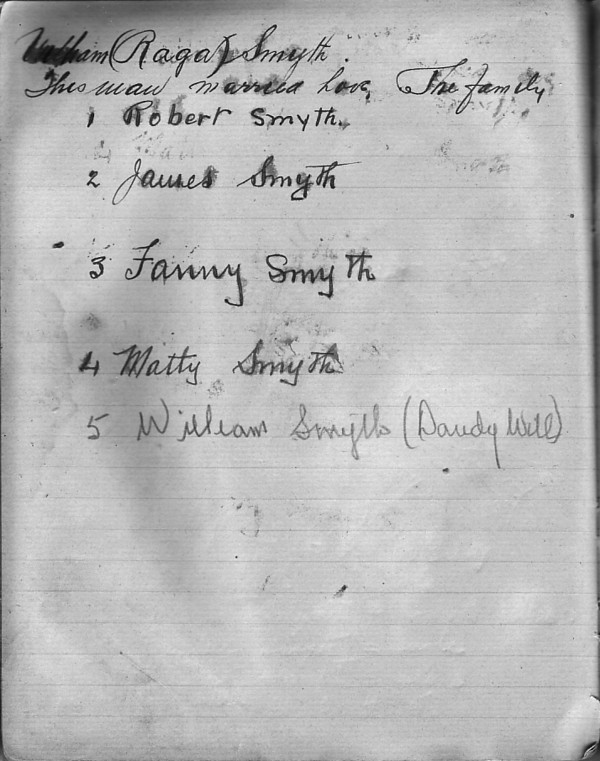 William (Raga) Smyth.
This man married Love, The family
1 Robert Smyth.
2 James Smyth
3 Fanny Smyth
4 Matty Smyth
5 William Smyth (Dandy Will)